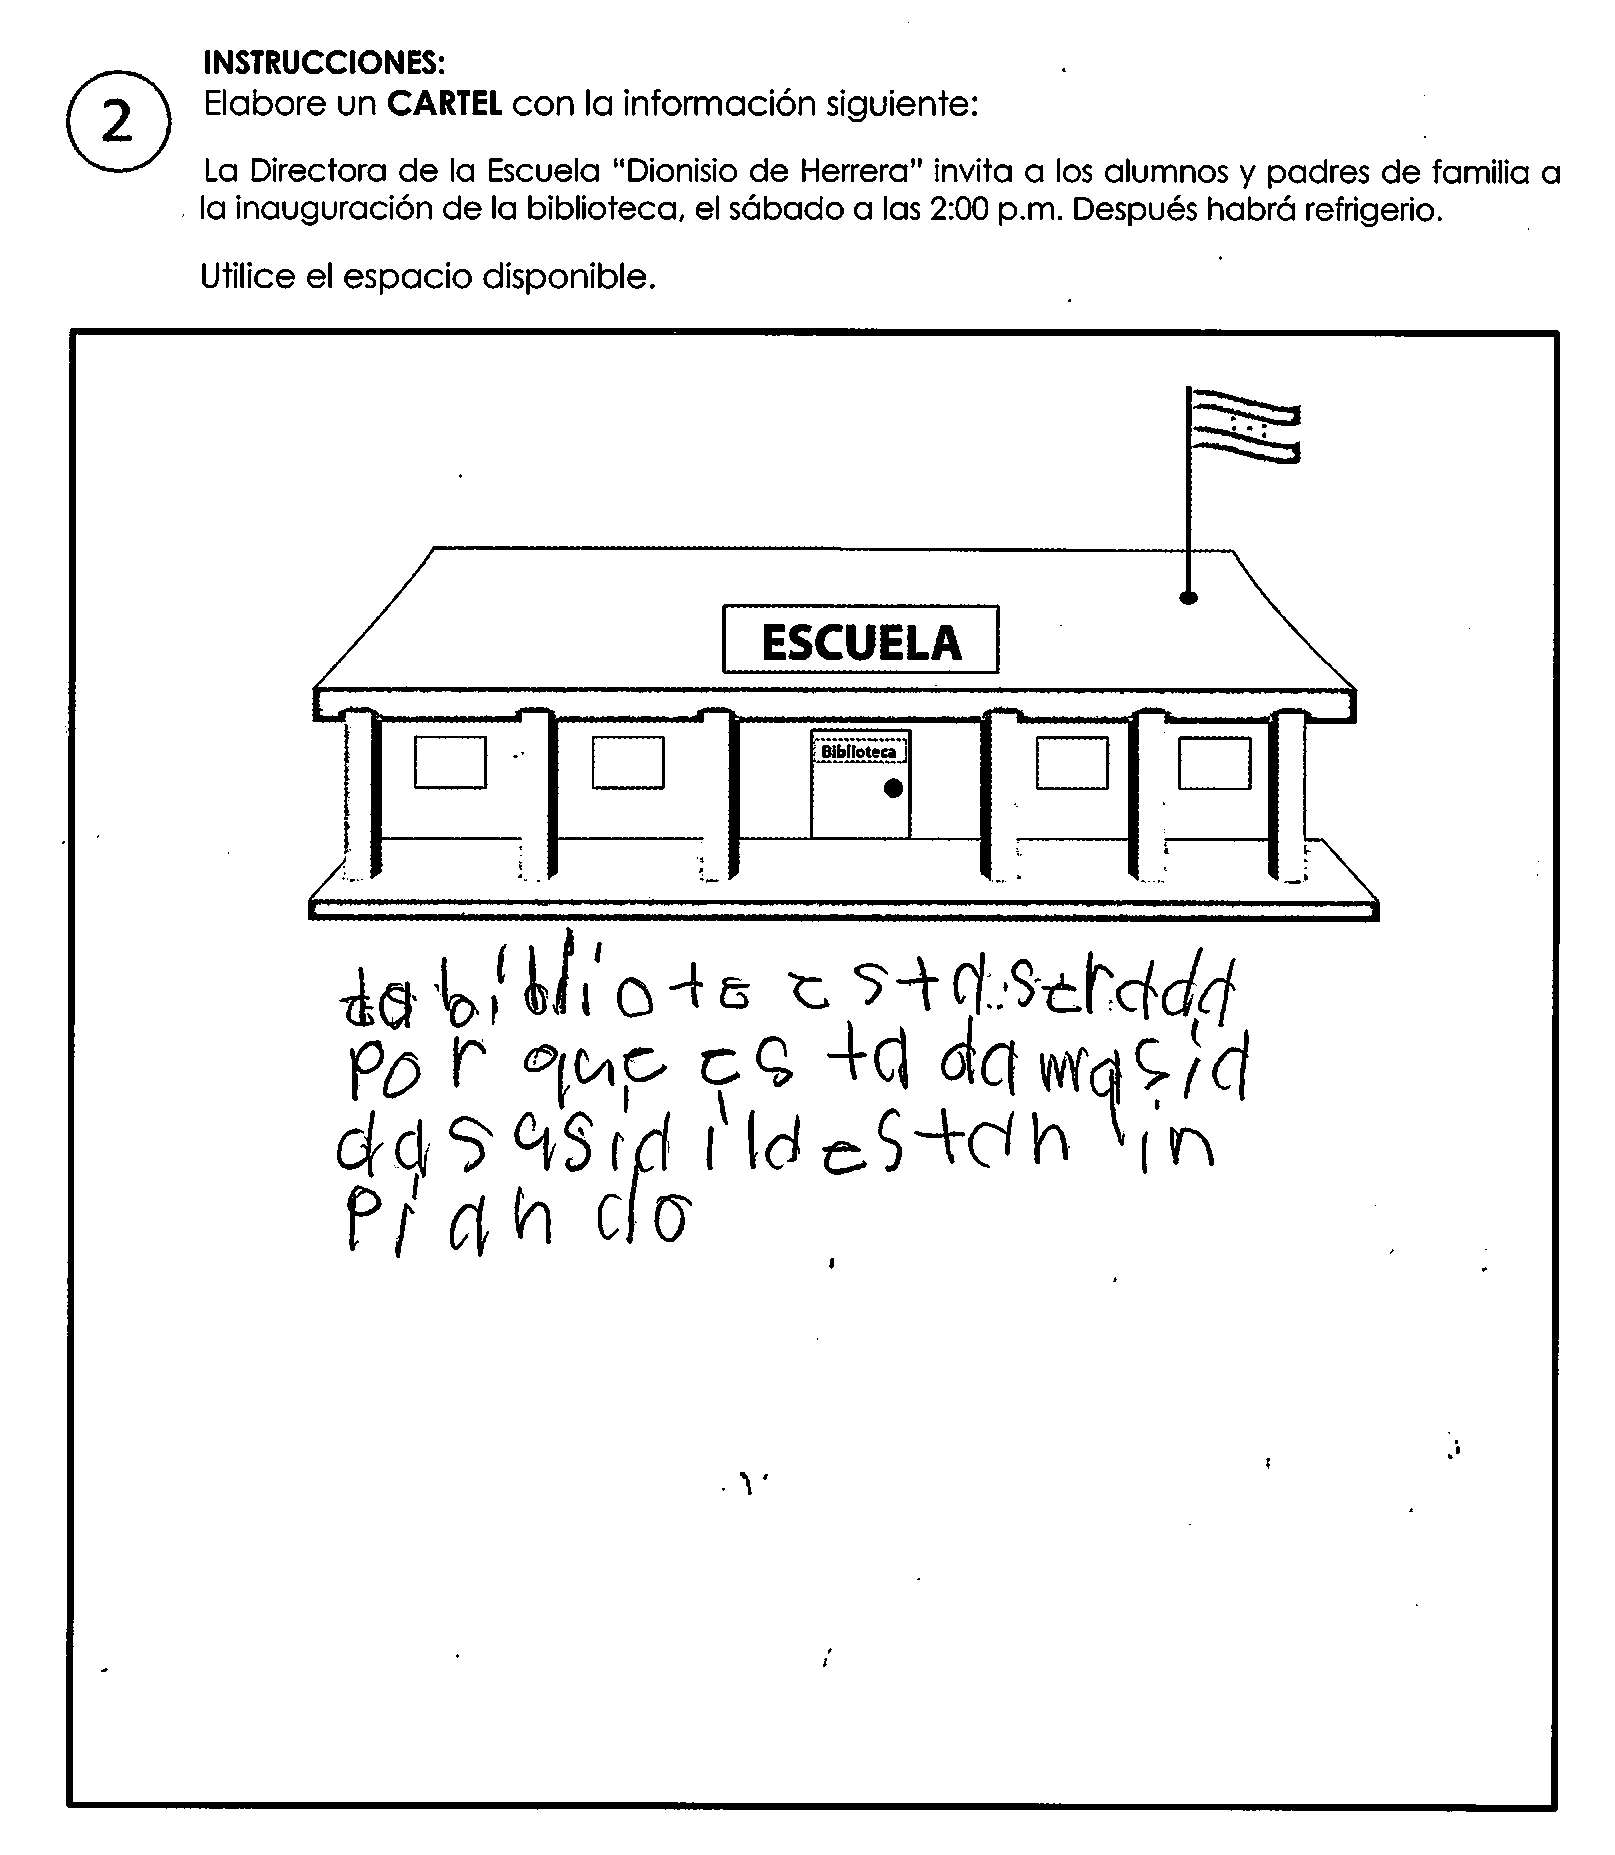 INSTRUCCIONES:
2
Elabore un CARTEL con la información siguiente:
La Directora de la Escuela "Dionisio de Herrera" invita a los alumnos y padres de familia a
la inauguración de la biblioteca, el sábado a las 2:00 p.m. Después habrá refrigerio.
Utilice el espacio disponible.
ESCUELA
Biblioteca
la bibliote esta serada
por que es ta da masia
da sasia i la estan in
pi an do